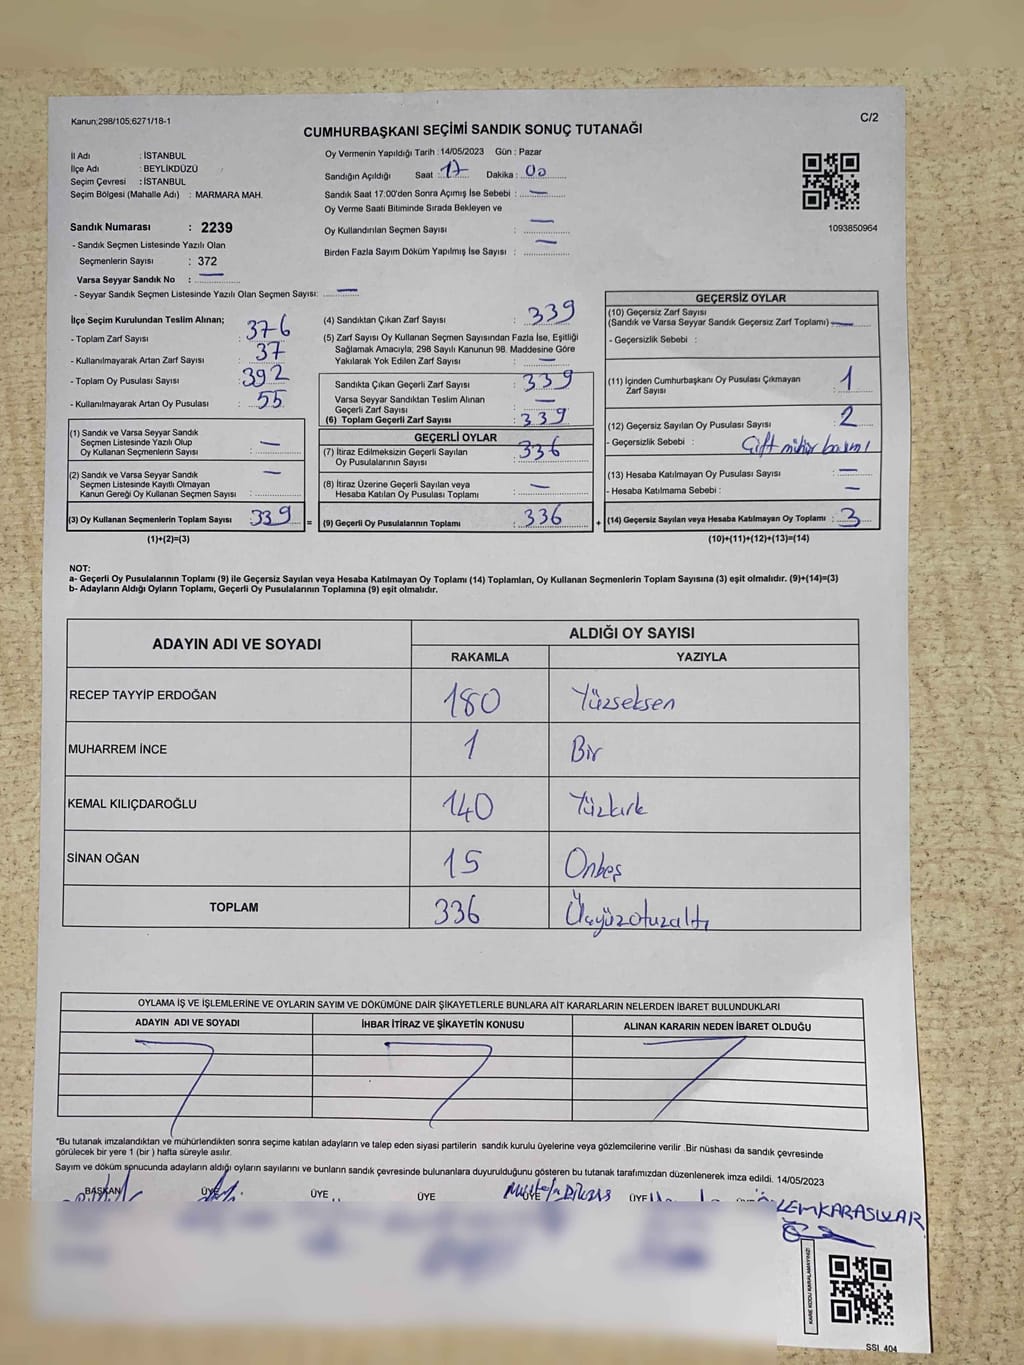 Kanun;298/105;6271/18-1
C/2
CUMHURBAŞKANI SEÇİMİ SANDIK SONUÇ TUTANAĞI
İl Adı : İSTANBUL
İlçe Adı : BEYLİKDÜZÜ
Seçim Çevresi : İSTANBUL
Seçim Bölgesi (Mahalle Adı) : MARMARA MAH.
Sandık Numarası : 2239
- Sandık Seçmen Listesinde Yazılı Olan
Seçmenlerin Sayısı : 372
Varsa Seyyar Sandık No : —
- Seyyar Sandık Seçmen Listesinde Yazılı Olan Seçmen Sayısı: —
Oy Vermenin Yapıldığı Tarih : 14/05/2023 Gün : Pazar
Sandığın Açıldığı Saat : 17 Dakika : 00
Sandık Saat 17:00'den Sonra Açımış İse Sebebi : —
Oy Verme Saati Bitiminde Sırada Bekleyen ve
Oy Kullandırılan Seçmen Sayısı : —
Birden Fazla Sayım Döküm Yapılmış İse Sayısı : —
1093850964
İlçe Seçim Kurulundan Teslim Alınan;
- Toplam Zarf Sayısı : 376
- Kullanılmayarak Artan Zarf Sayısı : 37
- Toplam Oy Pusulası Sayısı : 392
- Kullanılmayarak Artan Oy Pusulası : 55
(1) Sandık ve Varsa Seyyar Sandık
Seçmen Listesinde Yazılı Olup
Oy Kullanan Seçmenlerin Sayısı : —
(2) Sandık ve Varsa Seyyar Sandık
Seçmen Listesinde Kayıtlı Olmayan
Kanun Gereği Oy Kullanan Seçmen Sayısı : —
(3) Oy Kullanan Seçmenlerin Toplam Sayısı : 339 =
(1)+(2)=(3)
(4) Sandıktan Çıkan Zarf Sayısı : 339
(5) Zarf Sayısı Oy Kullanan Seçmen Sayısından Fazla İse, Eşitliği
Sağlamak Amacıyla, 298 Sayılı Kanunun 98. Maddesine Göre
Yakılarak Yok Edilen Zarf Sayısı : —
Sandıkta Çıkan Geçerli Zarf Sayısı : 339
Varsa Seyyar Sandıktan Teslim Alınan
Geçerli Zarf Sayısı : —
(6) Toplam Geçerli Zarf Sayısı : 339
GEÇERLİ OYLAR
(7) İtiraz Edilmeksizin Geçerli Sayılan
Oy Pusulalarının Sayısı : 336
(8) İtiraz Üzerine Geçerli Sayılan veya
Hesaba Katılan Oy Pusulası Toplamı : —
(9) Geçerli Oy Pusulalarının Toplamı : 336 +
GEÇERSİZ OYLAR
(10) Geçersiz Zarf Sayısı
(Sandık ve Varsa Seyyar Sandık Geçersiz Zarf Toplamı) —
- Geçersizlik Sebebi :
(11) İçinden Cumhurbaşkanı Oy Pusulası Çıkmayan
Zarf Sayısı : 1
(12) Geçersiz Sayılan Oy Pusulası Sayısı : 2
- Geçersizlik Sebebi : Çift mühür basımı
(13) Hesaba Katılmayan Oy Pusulası Sayısı : —
- Hesaba Katılmama Sebebi : —
(14) Geçersiz Sayılan veya Hesaba Katılmayan Oy Toplamı : 3
(10)+(11)+(12)+(13)=(14)
NOT:
a- Geçerli Oy Pusulalarının Toplamı (9) ile Geçersiz Sayılan veya Hesaba Katılmayan Oy Toplamı (14) Toplamları, Oy Kullanan Seçmenlerin Toplam Sayısına (3) eşit olmalıdır. (9)+(14)=(3)
b- Adayların Aldığı Oyların Toplamı, Geçerli Oy Pusulalarının Toplamına (9) eşit olmalıdır.
ADAYIN ADI VE SOYADI
ALDIĞI OY SAYISI
RAKAMLA YAZIYLA
RECEP TAYYİP ERDOĞAN 180 Yüzseksen
MUHARREM İNCE 1 Bir
KEMAL KILIÇDAROĞLU 140 Yüzkırk
SİNAN OĞAN 15 Onbeş
TOPLAM 336 Üçyüzotuzaltı
OYLAMA İŞ VE İŞLEMLERİNE VE OYLARIN SAYIM VE DÖKÜMÜNE DAİR ŞİKAYETLERLE BUNLARA AİT KARARLARIN NELERDEN İBARET BULUNDUKLARI
ADAYIN ADI VE SOYADI İHBAR İTİRAZ VE ŞİKAYETİN KONUSU ALINAN KARARIN NEDEN İBARET OLDUĞU
*Bu tutanak imzalandıktan ve mühürlendikten sonra seçime katılan adayların ve talep eden siyasi partilerin sandık kurulu üyelerine veya gözlemcilerine verilir .Bir nüshası da sandık çevresinde
görülecek bir yere 1 (bir ) hafta süreyle asılır.
Sayım ve döküm sonucunda adayların aldığı oyların sayılarını ve bunların sandık çevresinde bulunanlara duyurulduğunu gösteren bu tutanak tarafımızdan düzenlenerek imza edildi. 14/05/2023
BAŞKAN ÜYE ÜYE ÜYE ÜYE ÜYE
KARE KODU KARALAMAYINIZ!
SSI_404